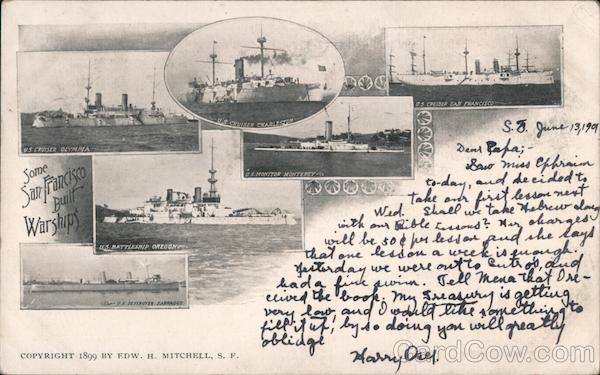 U.S. CRUISER OLYMPIA
U.S. CRUISER CHARLESTON
U.S. CRUISER SAN FRANCISCO
U.S. MONITOR MONTEREY
Some
San Francisco
Built
Warships
U.S. BATTLESHIP OREGON
U.S. DESTROYER FARRAGUT
S.F. June 13, 1901
Dear Papa;-
Saw Miss Ephraim
to-day, and decided to
take our first lesson next
Wed. Shall we take Hebrew along
with our Bible Lessons? Her charges
will be 50¢ per lesson and she says
that one lesson a week is enough.
Yesterday we were out to Sutros, and
had a fine swim. Tell Mena that I re-
ceived the book. My Treasury is getting
very low, and I would like something to
fill it up; by so doing you will greatly
oblidge
Harry
COPYRIGHT 1899 BY EDW. H. MITCHELL, S. F.
CardCow.com